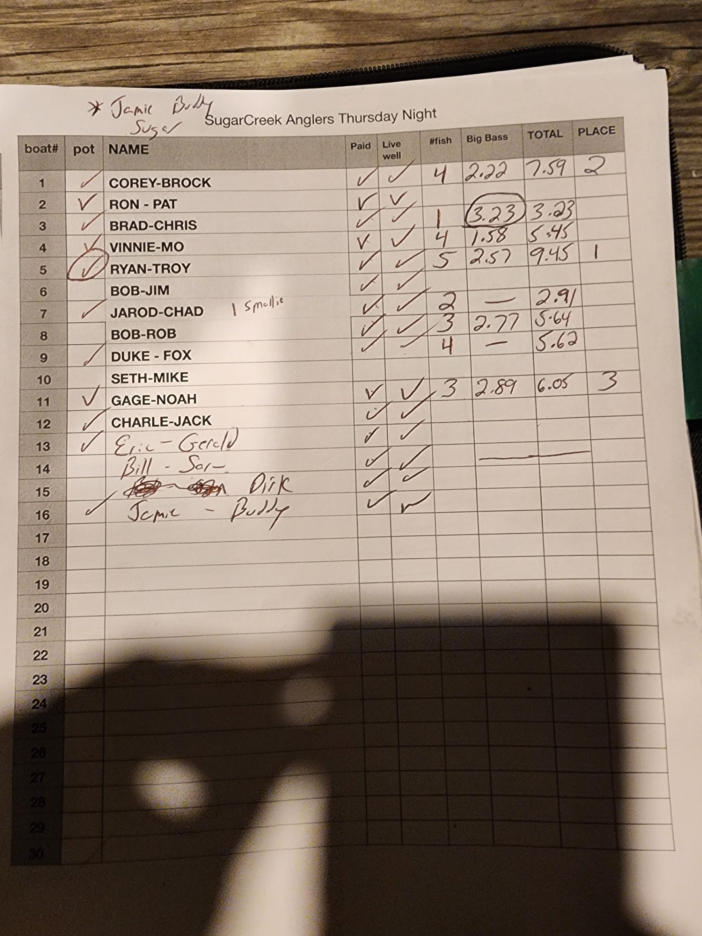 * Jamie Buddy
Sugar
SugarCreek Anglers Thursday Night
boat# pot NAME Paid Live well #fish Big Bass TOTAL PLACE
1 ✓ COREY-BROCK ✓ ✓ 4 2.22 7.59 2
2 ✓ RON - PAT ✓ ✓
3 ✓ BRAD-CHRIS ✓ ✓ 1 3.23 3.23
4 ✓ VINNIE-MO ✓ ✓ 4 1.58 5.45
5 ✓ RYAN-TROY ✓ ✓ 5 2.57 9.45 1
6 BOB-JIM ✓ ✓
7 ✓ JAROD-CHAD 1 Smallie ✓ ✓ 2 — 2.91
8 BOB-ROB ✓ ✓ 3 2.77 5.64
9 ✓ DUKE - FOX ✓ ✓ 4 — 5.62
10 SETH-MIKE
11 ✓ GAGE-NOAH ✓ ✓ 3 2.89 6.05 3
12 ✓ CHARLE-JACK ✓ ✓
13 ✓ Eric - Gerald ✓ ✓
14 Bill - ✓ ✓ —
15 Dirk ✓ ✓
16 ✓ Jamie - Buddy ✓ ✓
17
18
19
20
21
22
23
24
25
26
27
28
29
30